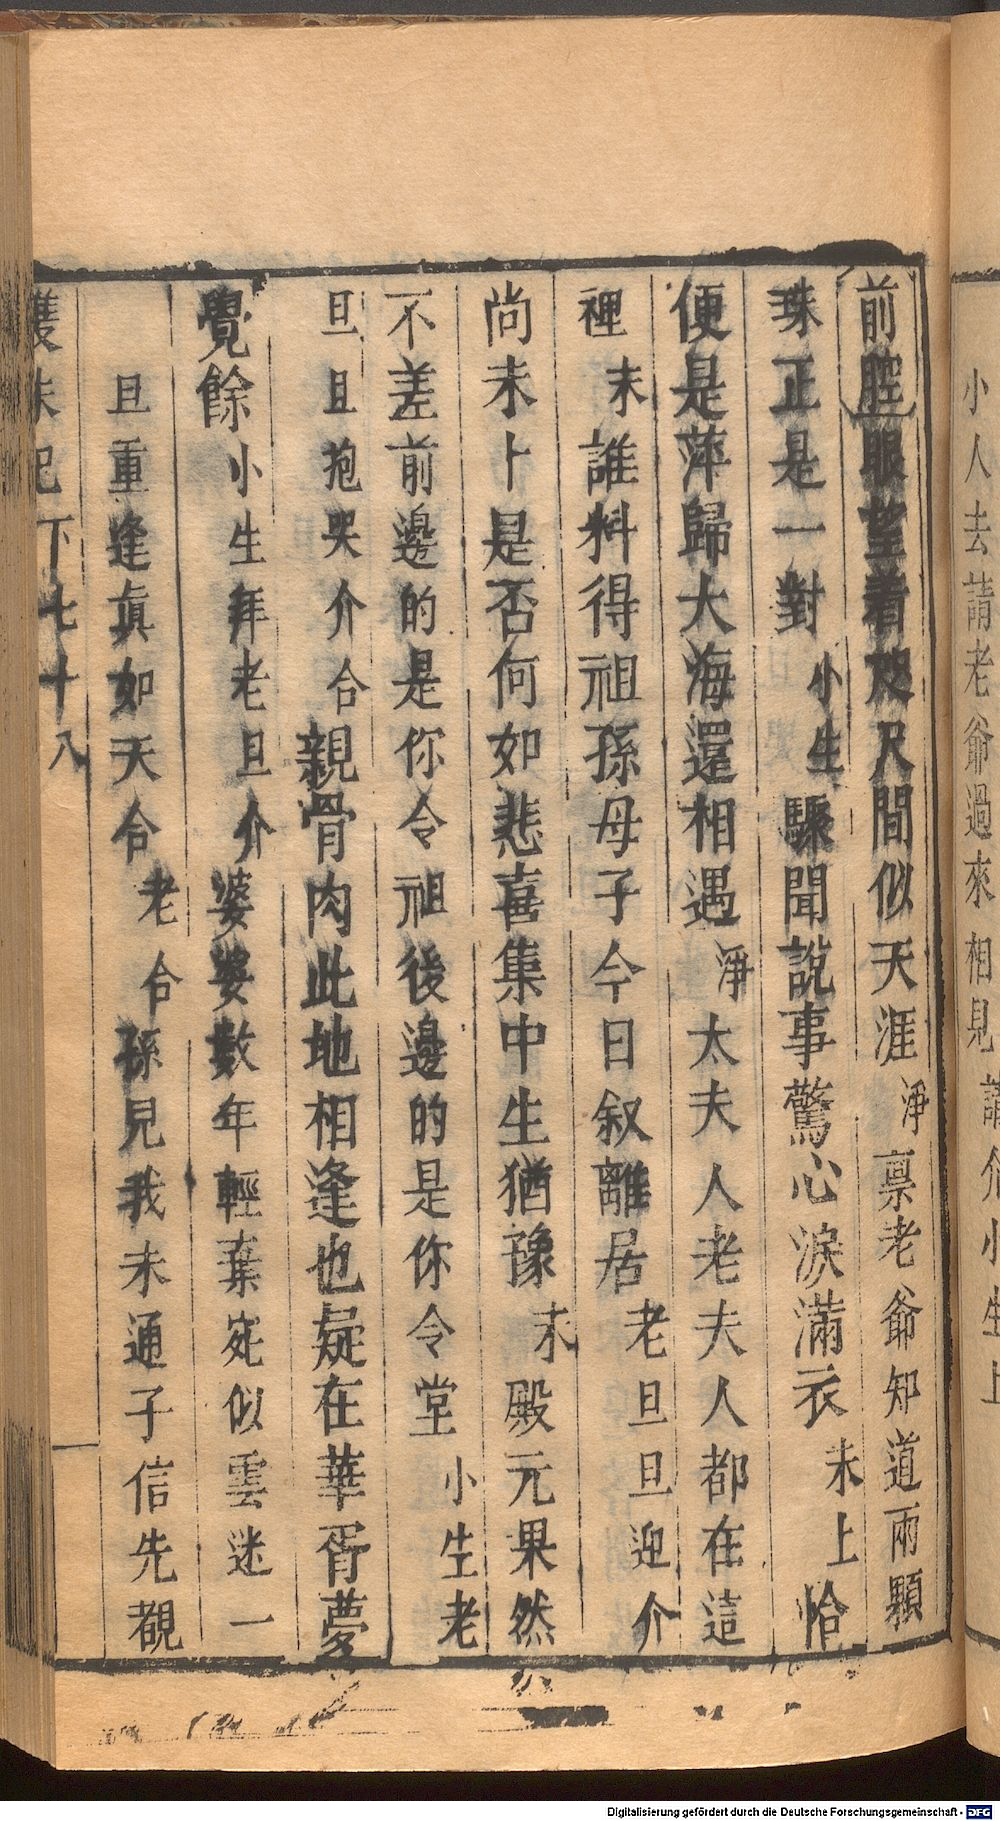 小人去請老爺過來相見請介小生上
前腔眼望着咫尺間似天涯淨禀老爺知道兩顆
珠正是一對小生驟聞說事驚心淚滿衣末上恰
便是萍歸大海還相遇淨太夫人老夫人都在這
裡末誰料得祖孫母子今日叙離居老旦旦迎介
尚未卜是否何如悲喜集中生猶豫末殿元果然
不差前邊的是你令祖後邊的是你令堂小生老
旦旦抱哭介合親骨肉此地相逢也疑在華胥夢
覺餘小生拜老旦介婆婆數年輕棄宛似雲迷一
旦重逢眞如天合老合孫見我未通子信先覩
雙珠記下七十八
Digitalisierung gefördert durch die Deutsche Forschungsgemeinschaft - DFG